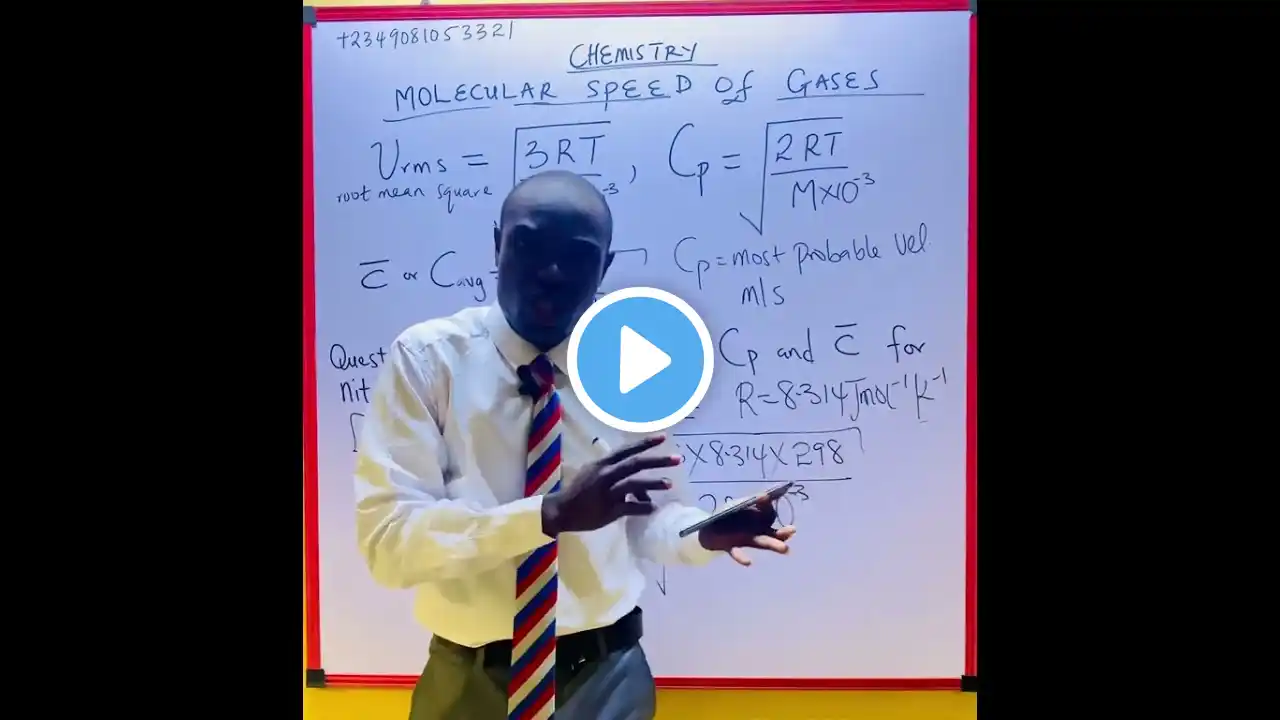 +2349081053321
CHEMISTRY
MOLECULAR SPEED Of GASES
Urms = √3RT
-3 , Cp = √2RT
M×10-3
root mean square
c̄ or Cavg =
Cp = most probable vel
m/s
Cp and c̄ for
R = 8.314Jmol-1k-1
×8.314×298
-3